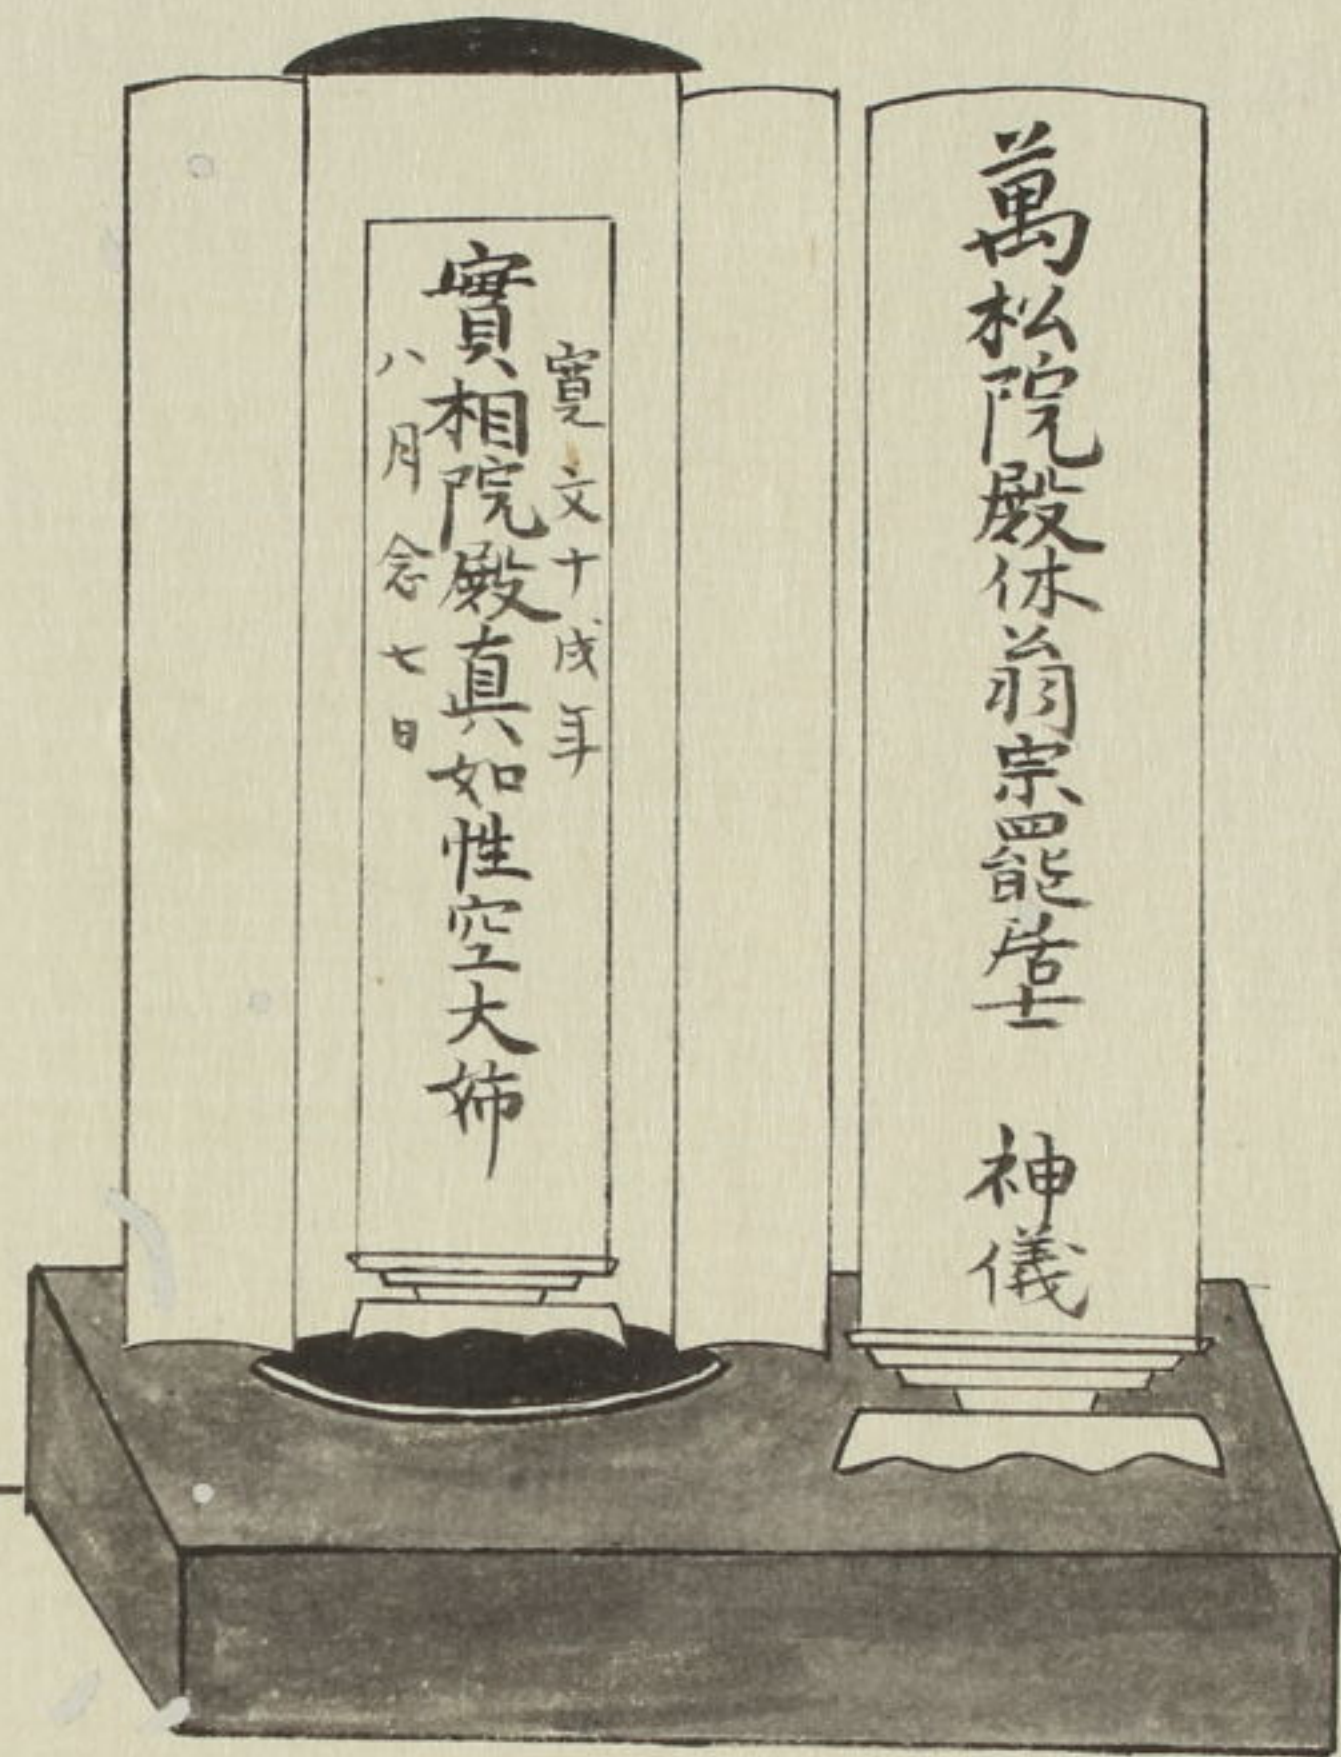 萬松院殿休翁宗罷居士 神儀
寛文十戌年
實相院殿真如性空大姉
八月念七日